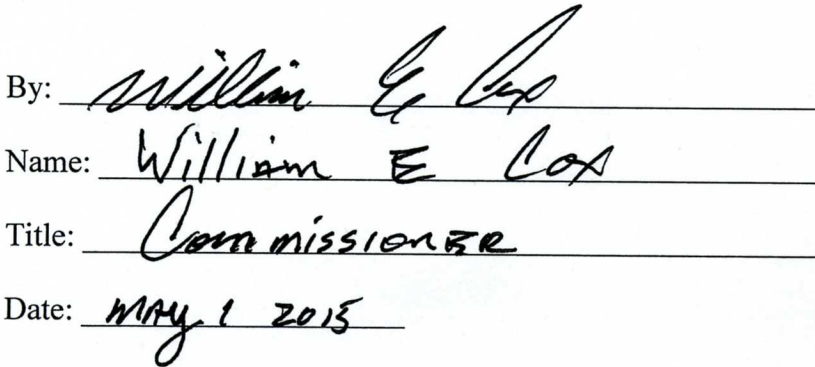 By: William E Cox
Name: William E Cox
Title: Commissioner
Date: May 1 2015